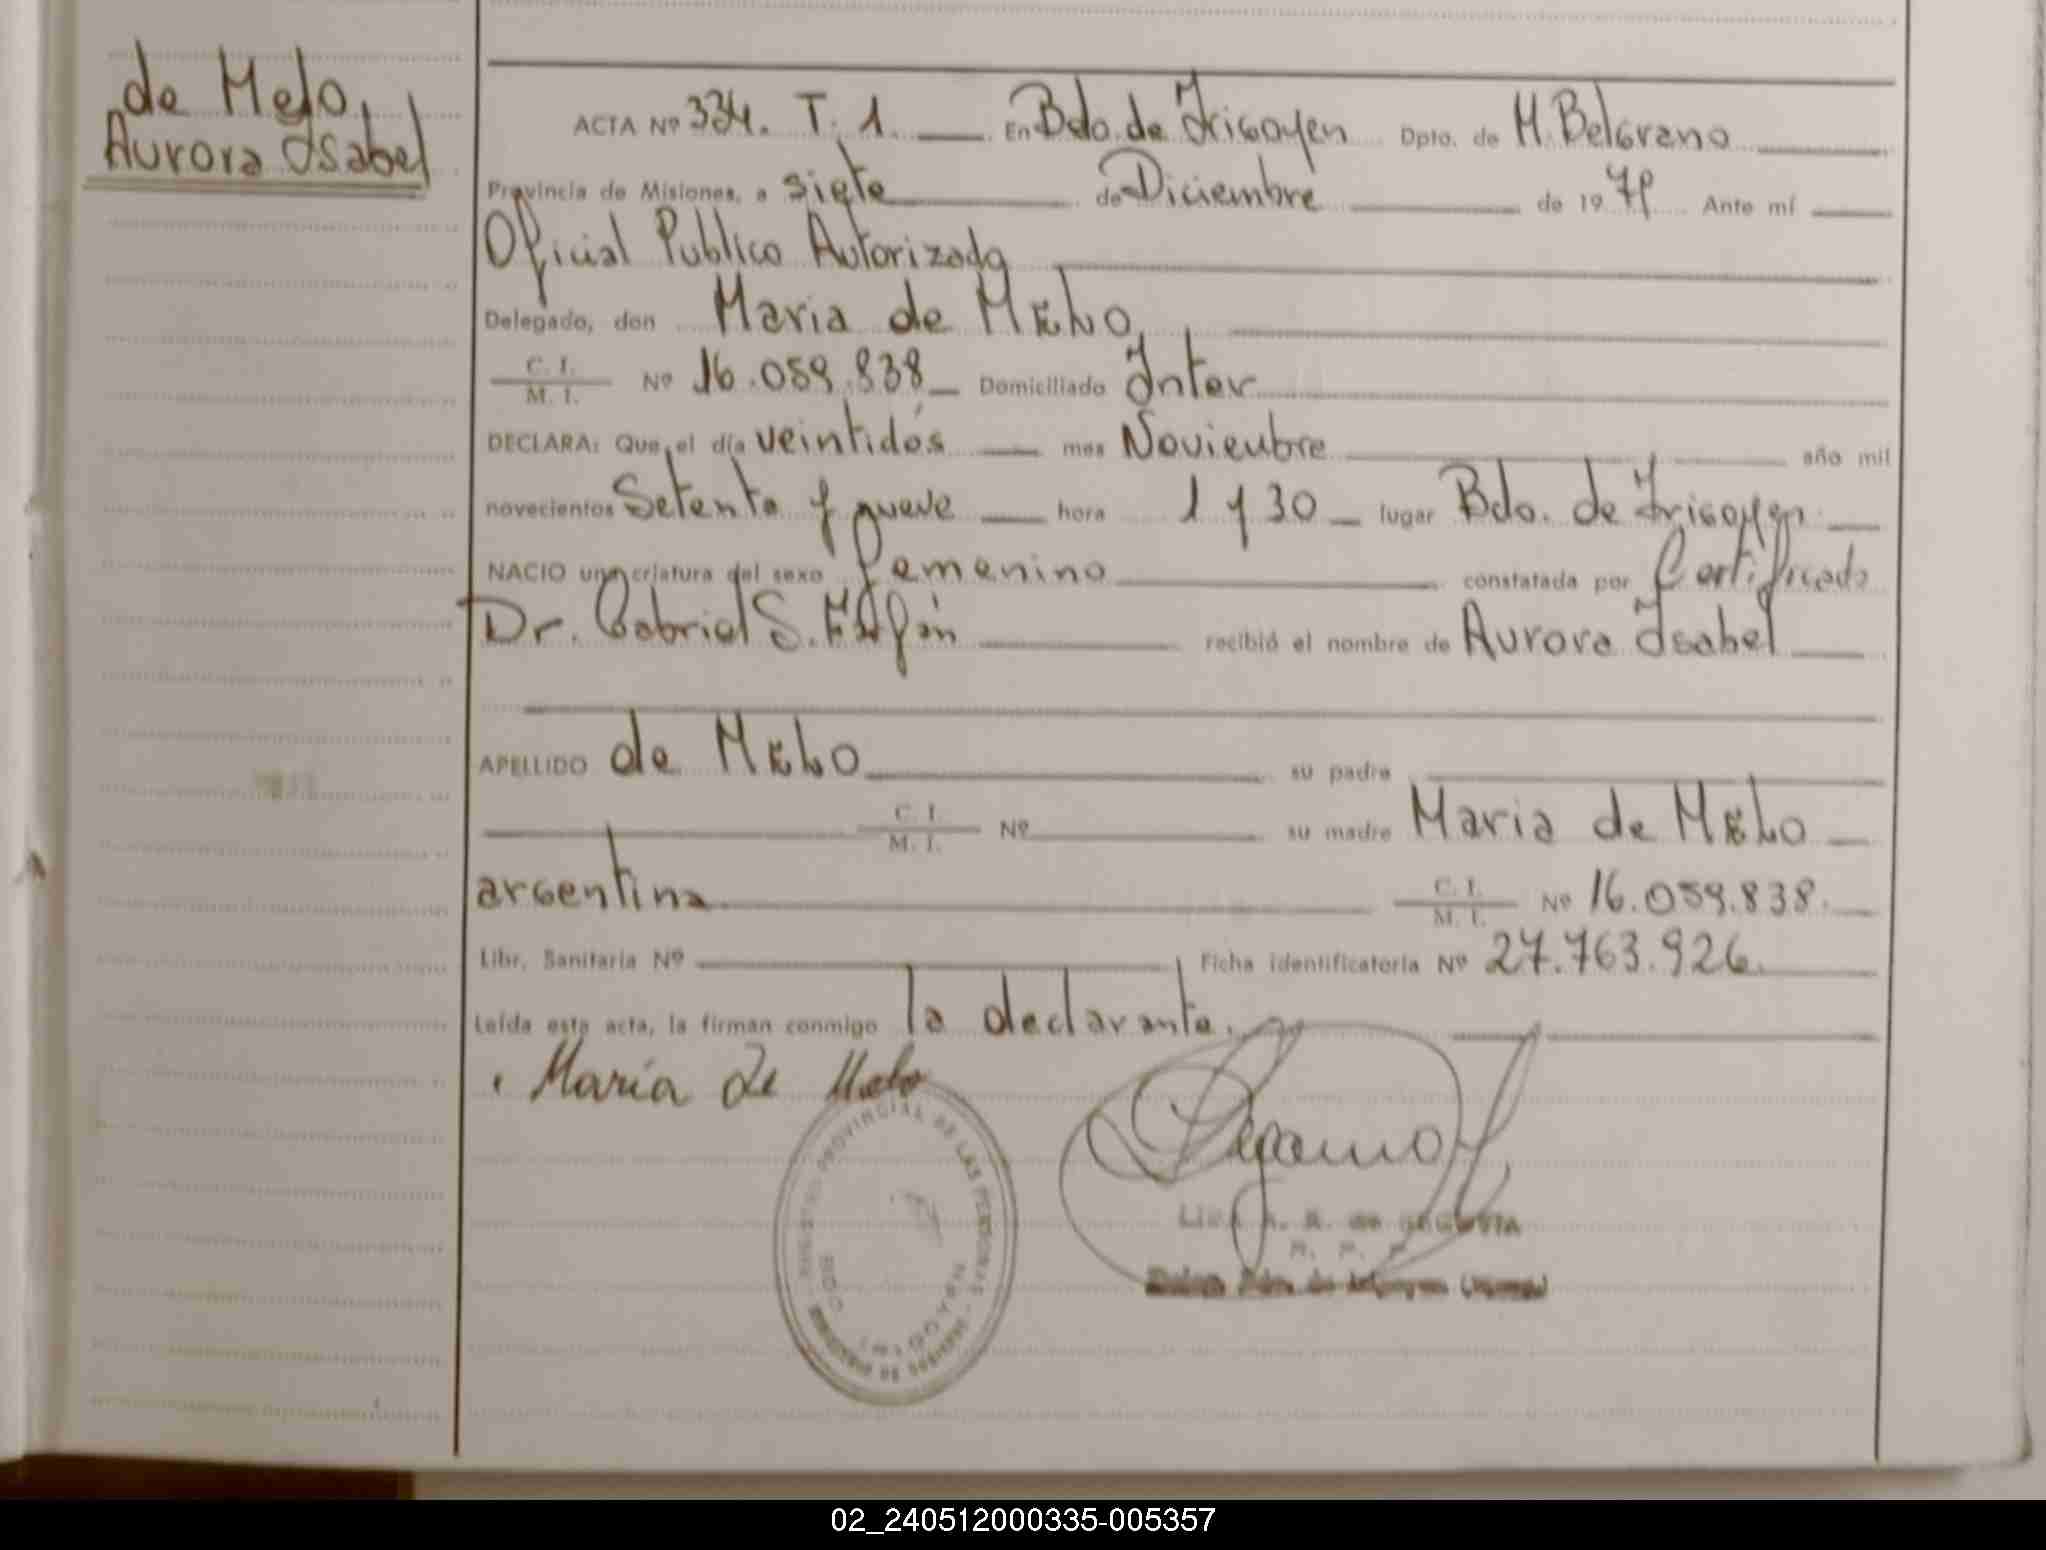 de Melo,
Aurora Isabel
ACTA Nº 334. T. 1. En Bdo. de Irigoyen Dpto. de M. Belgrano
Provincia de Misiones, a siete de Diciembre de 1979 Ante mí
Oficial Publico Autorizado
Delegado, don Maria de Melo
C. I. / M. I. Nº 16.059.838 Domiciliado Inter
DECLARA: Que el día veintidós mes Noviembre año mil
novecientos Setenta y nueve hora 1 y 30 lugar Bdo. de Irigoyen
NACIO una criatura del sexo femenino constatada por Certificado
Dr. Gabriel S. recibió el nombre de Aurora Isabel
APELLIDO de Melo su padre
C. I. / M. I. Nº su madre Maria de Melo
argentina C. I. / M. I. Nº 16.059.838.
Libr. Sanitaria Nº Ficha identificatoria Nº 27.763.926.
Leída esta acta, la firman conmigo la declarante.
María de Melo
REGISTRO PROVINCIAL DE LAS PERSONAS
MINISTERIO DE GOBIERNO
BDO. IRIGOYEN
de SEGOVIA
02_240512000335-005357